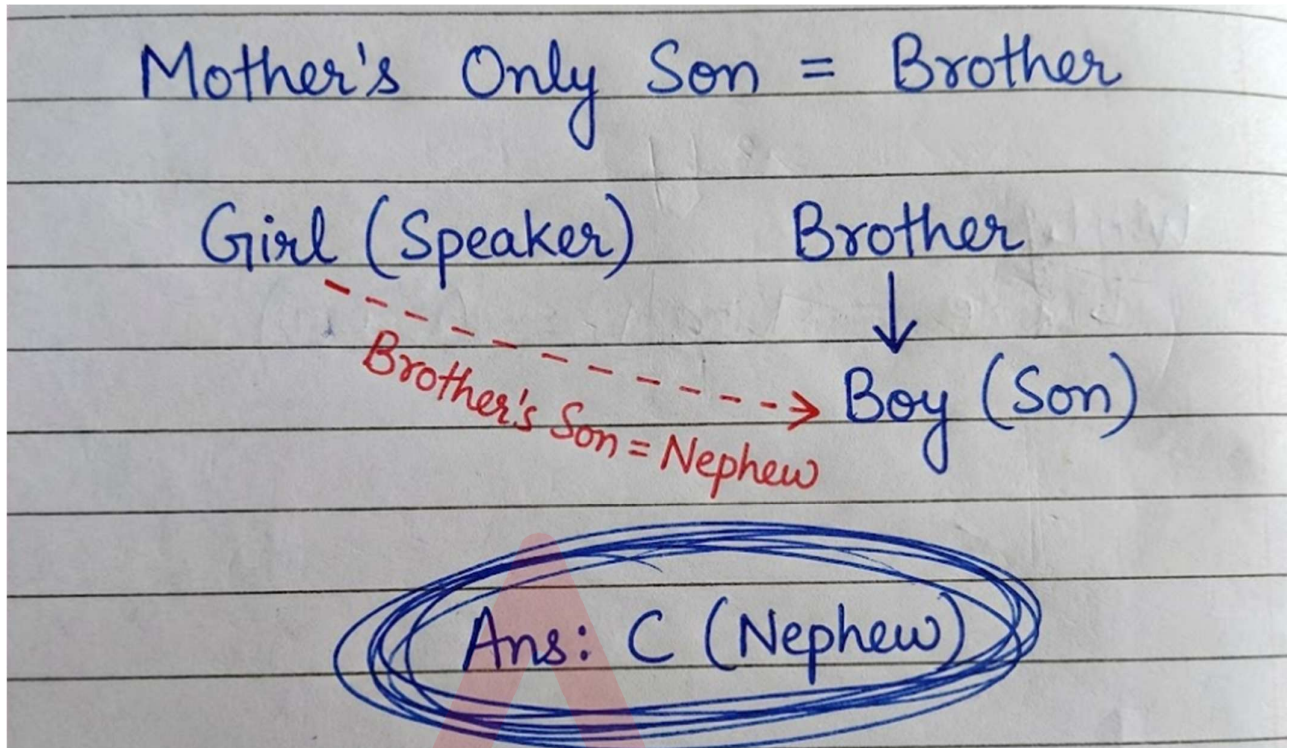 Mother's Only Son = Brother
Girl (Speaker) Brother
Boy (Son)
Brother's Son = Nephew
Ans: C (Nephew)